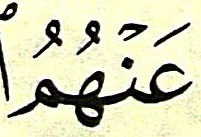 عَنۡهُمُ ا